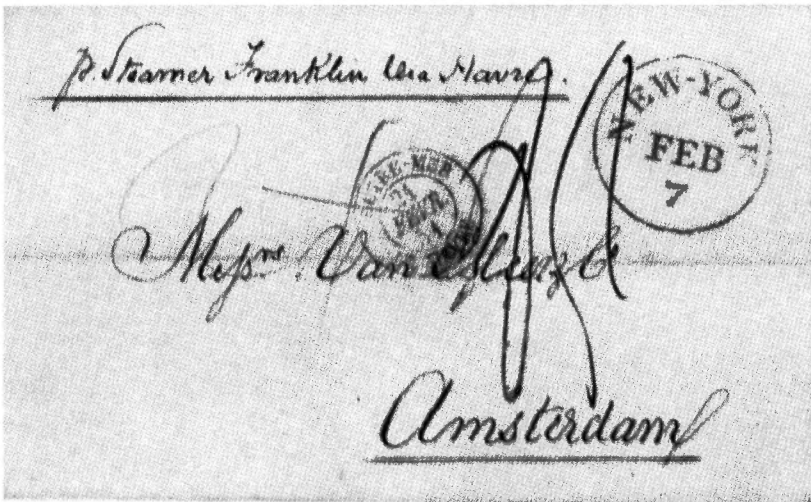 p. Steamer Franklin via Havre.
NEW-YORK
FEB
7
FEVR.
Messrs Van &
Amsterdam